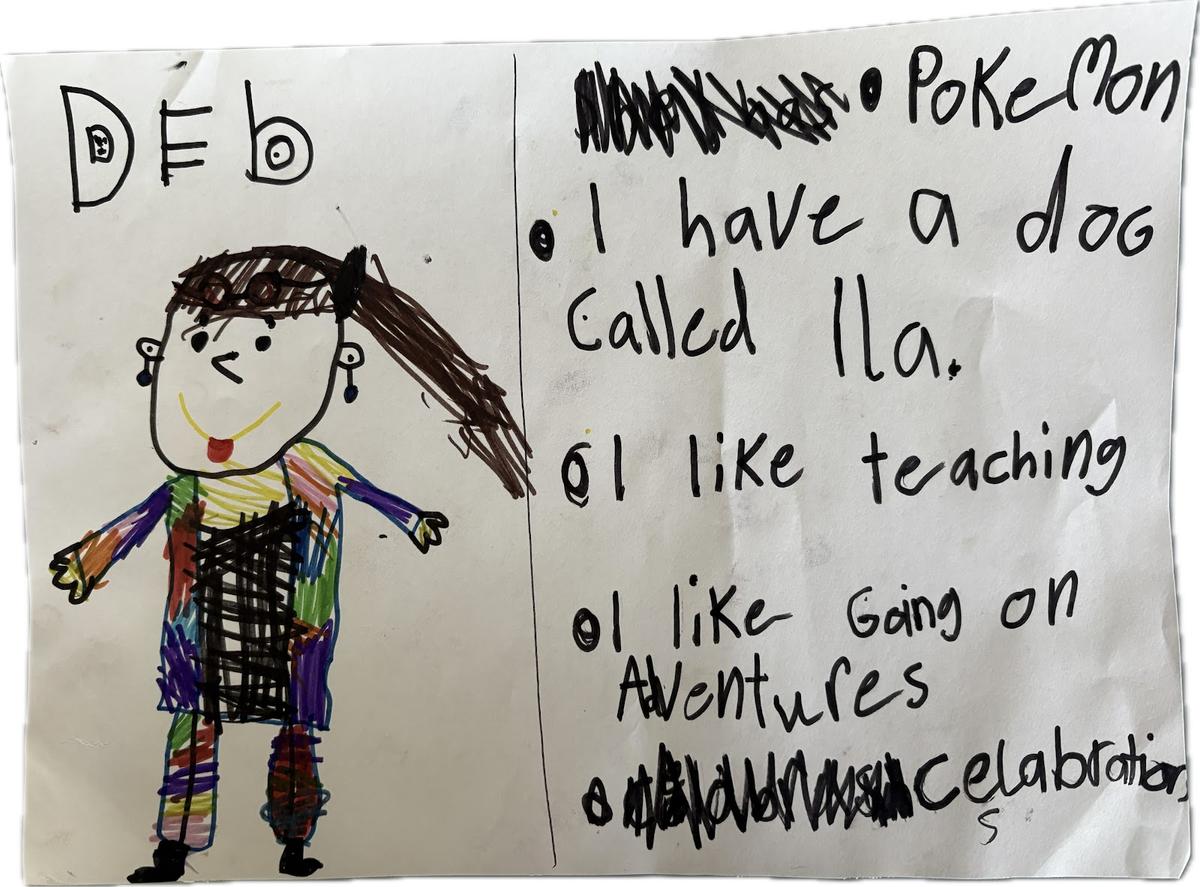 DEb
• PokeMon
• I have a dog
Called Ila.
• I like teaching
• I like Going on
Adventures
• Celabrations
s